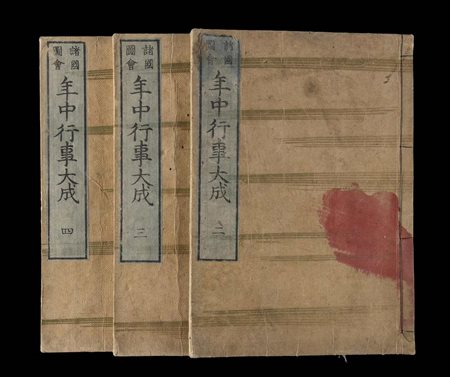 諸國
圖會
年中行事大成 二
諸國
圖會
年中行事大成 三
諸國
圖會
年中行事大成 四